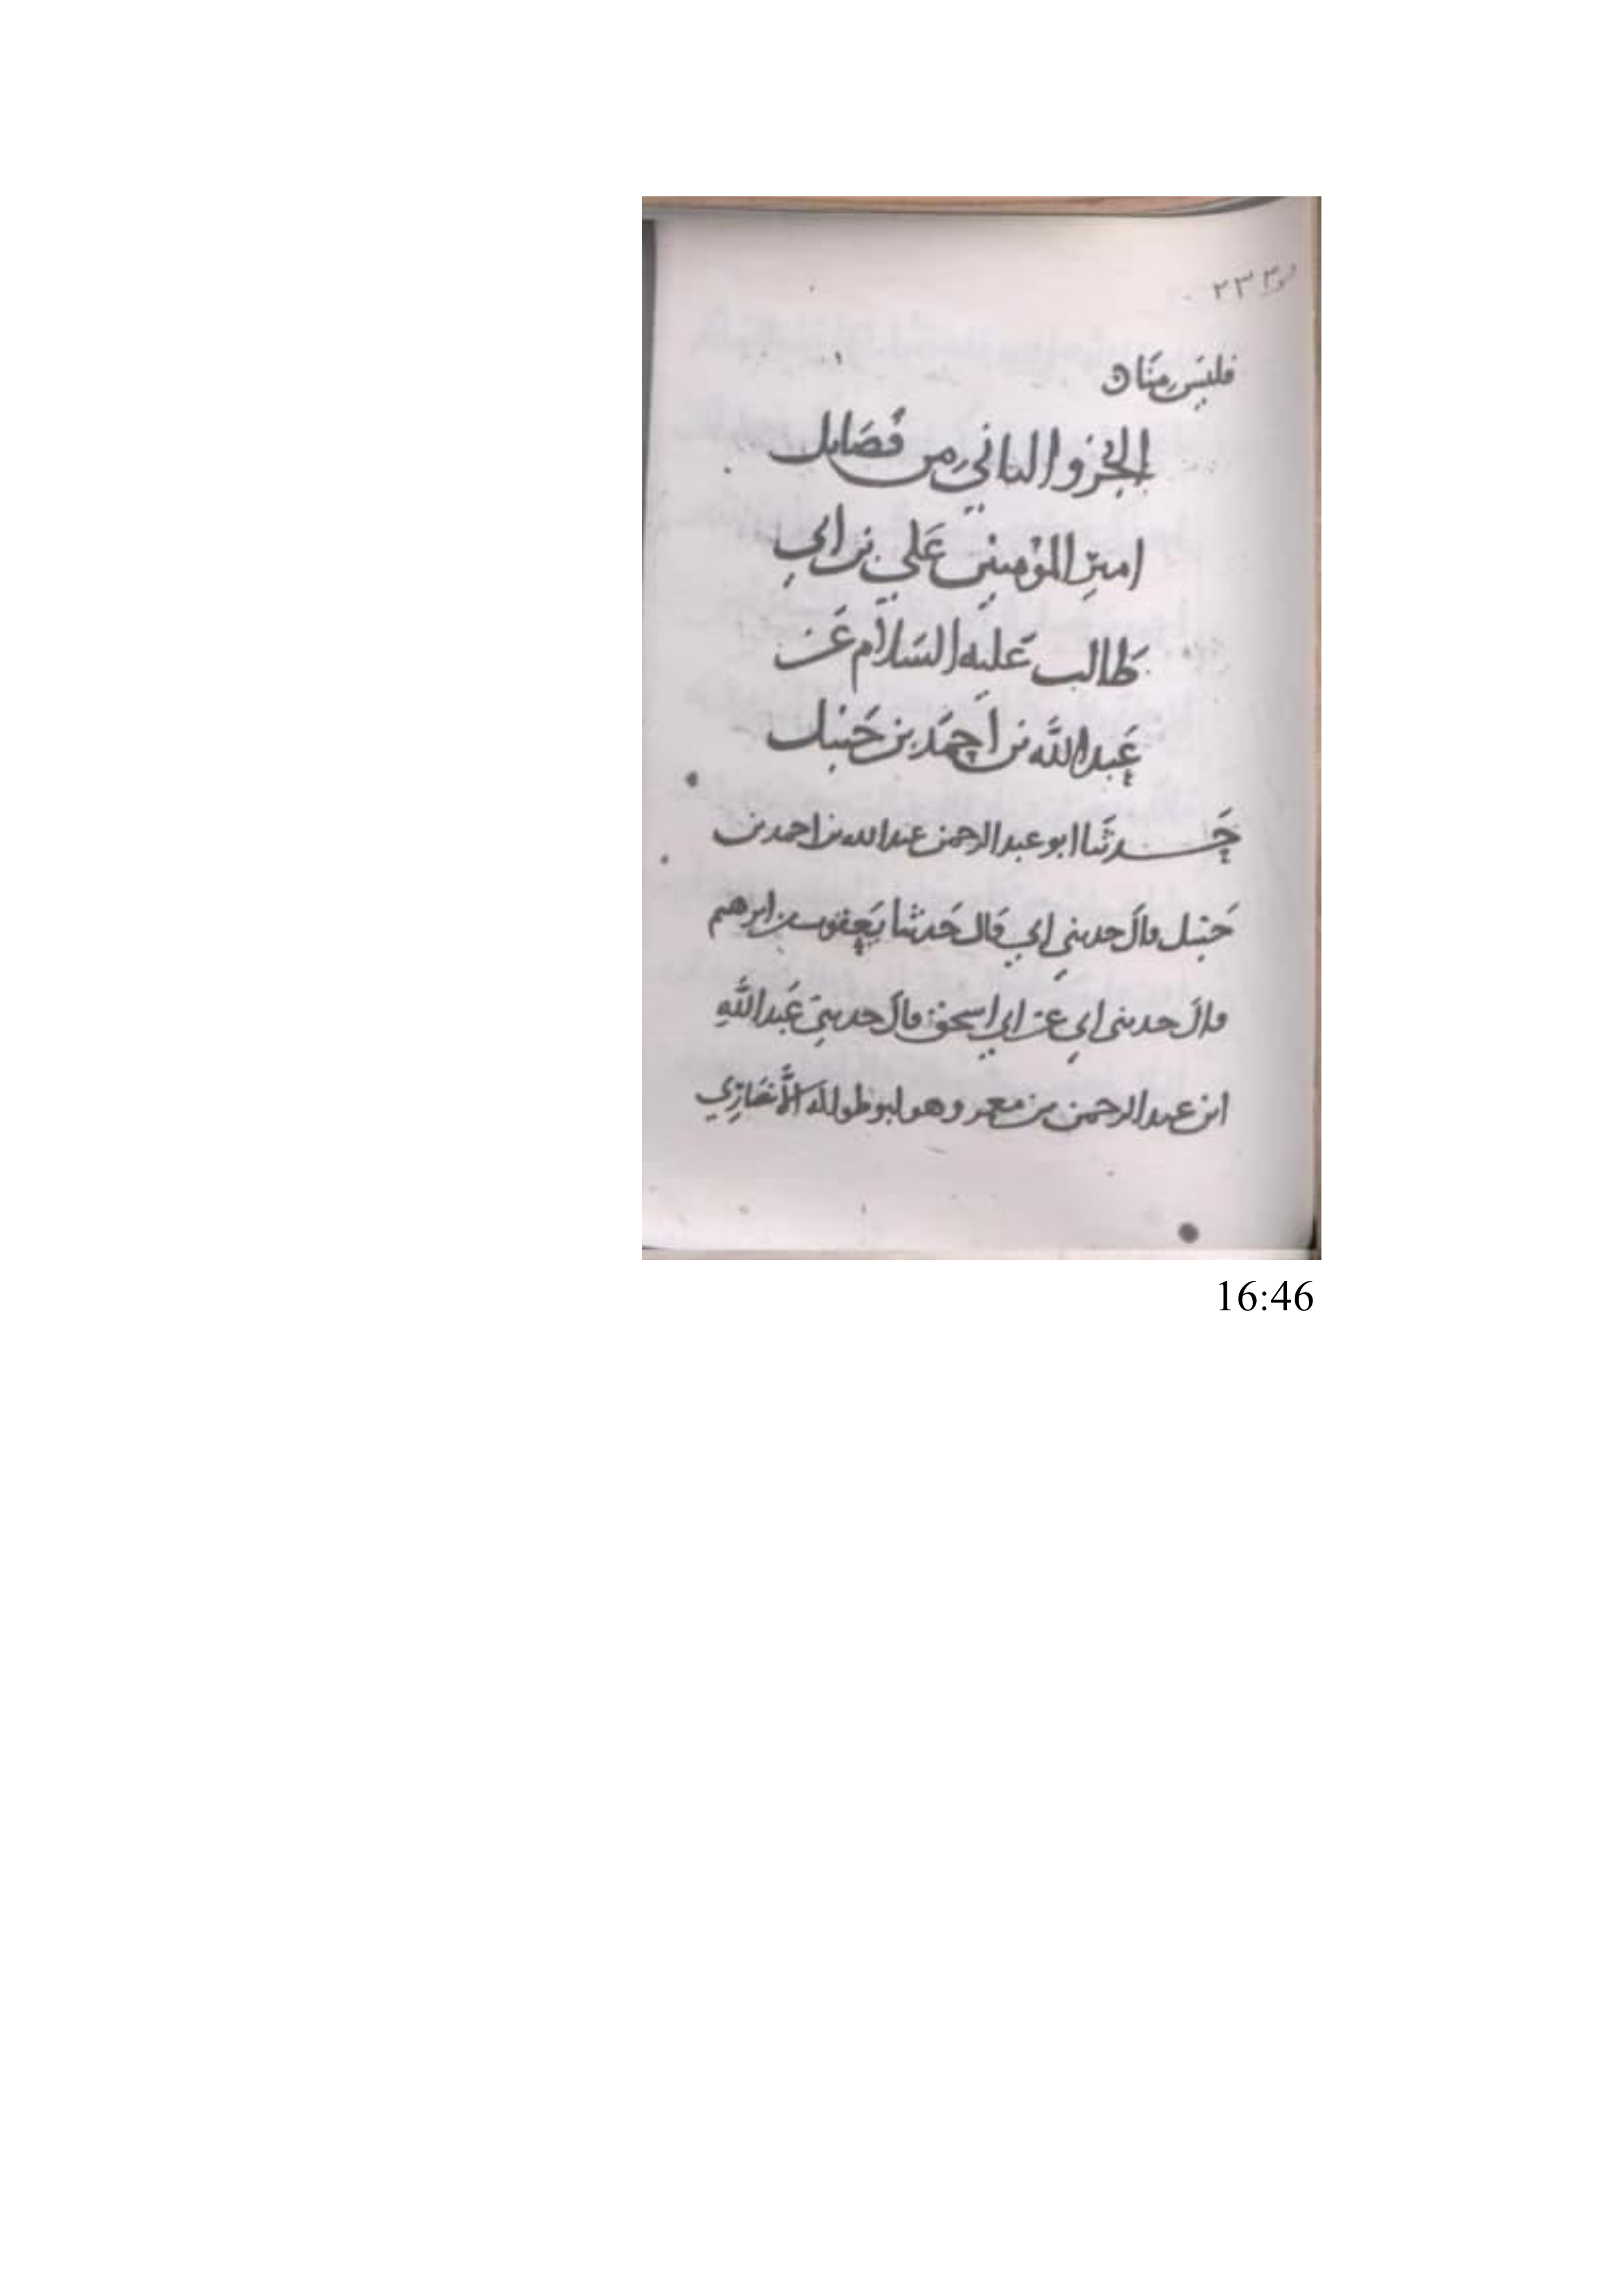 ٢٣٢
فليس منا
الجزو الثاني من فضايل
امير المؤمنين علي بن ابي
طالب عليه السلام عن
عبد الله بن احمد بن حنبل
حدثنا ابو عبد الرحمن عبد الله بن احمد بن
حنبل قال حدثني ابي قال حدثنا يعقوب بن ابرهيم
قال حدثني ابي عن ابن اسحق قال حدثني عبد الله
ابن عبد الرحمن بن معمر وهو ابو طوالة الأنصاري
16:46